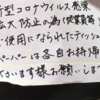 新型コロナウイルス感染
拡大防止の為(従業員等
ご使用になられたティッシュ
ペーパーは各自お持ち帰
ださいます様お願いします